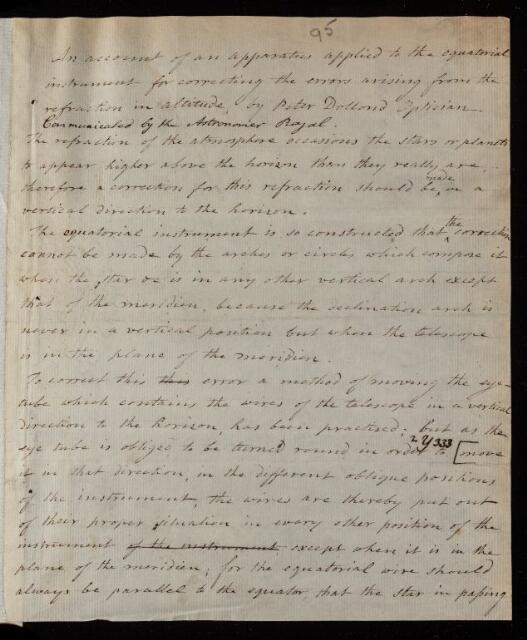 95
An account of an apparatus applied to the equatorial
instrument for correcting the errors arising from the
refraction in altitude, by Peter Dollond Optician
Communicated by the Astronomer Royal.
The refraction of the atmosphere occasions the stars or planets
to appear higher above the horizon than they really are,
therefore a correction for this refraction should be made in a
vertical direction to the horizon.
The equatorial instrument is so constructed that the correction
cannot be made by the arches or circles which compose it
when the star &c is in any other vertical arch except
that of the meridian, because the declination arch is
never in a vertical position but when the telescope
is in the plane of the meridian.
To correct this this error a method of moving the eye-
tube which contains the wires of the telescope in a vertical
direction to the horizon, has been practised; but as the
eye tube is obliged to be turned round in order to [move
2 Y 333
it in that direction, in the different oblique positions
of the instrument, the wires are thereby put out
of their proper situation in every other position of the
instrument of the instrument except when it is in the
plane of the meridian; for the equatorial wire should
always be parallel to the equator, that the star in paſsing